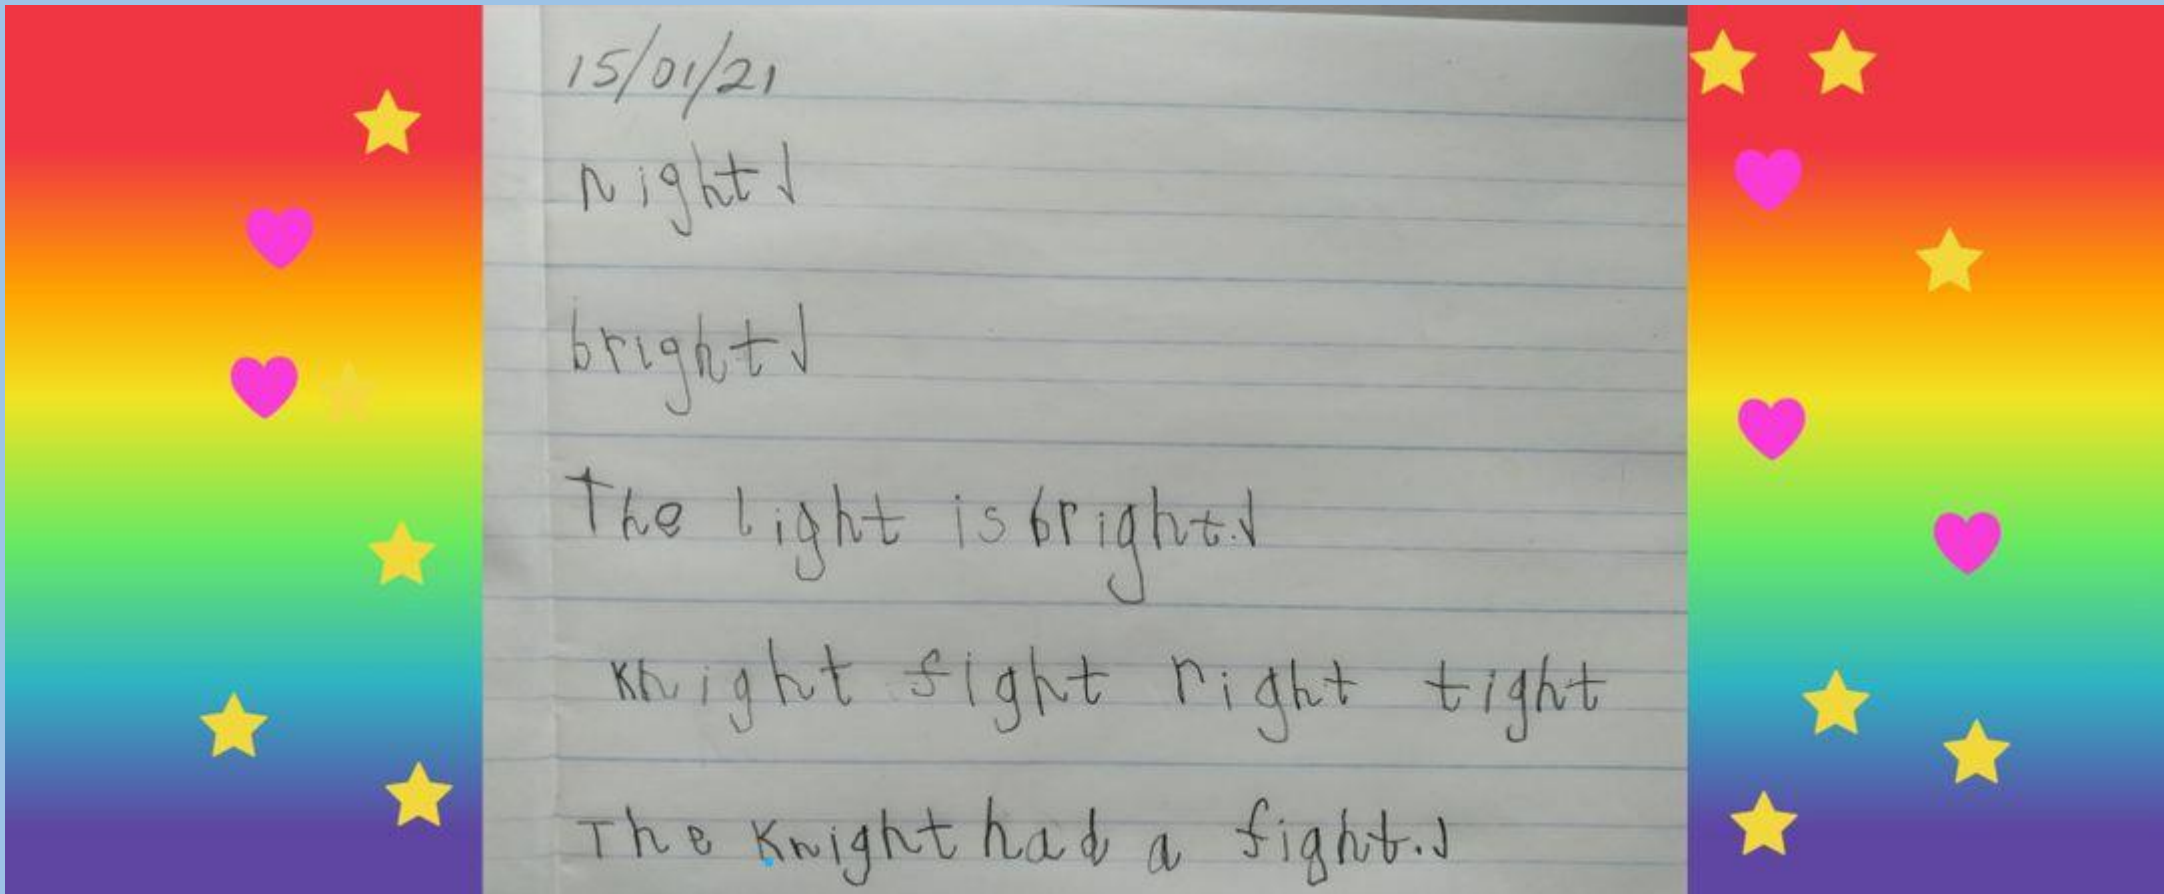 15/01/21
night ✓
bright ✓
The light is bright. ✓
Knight fight right tight
The Knight had a fight. ✓